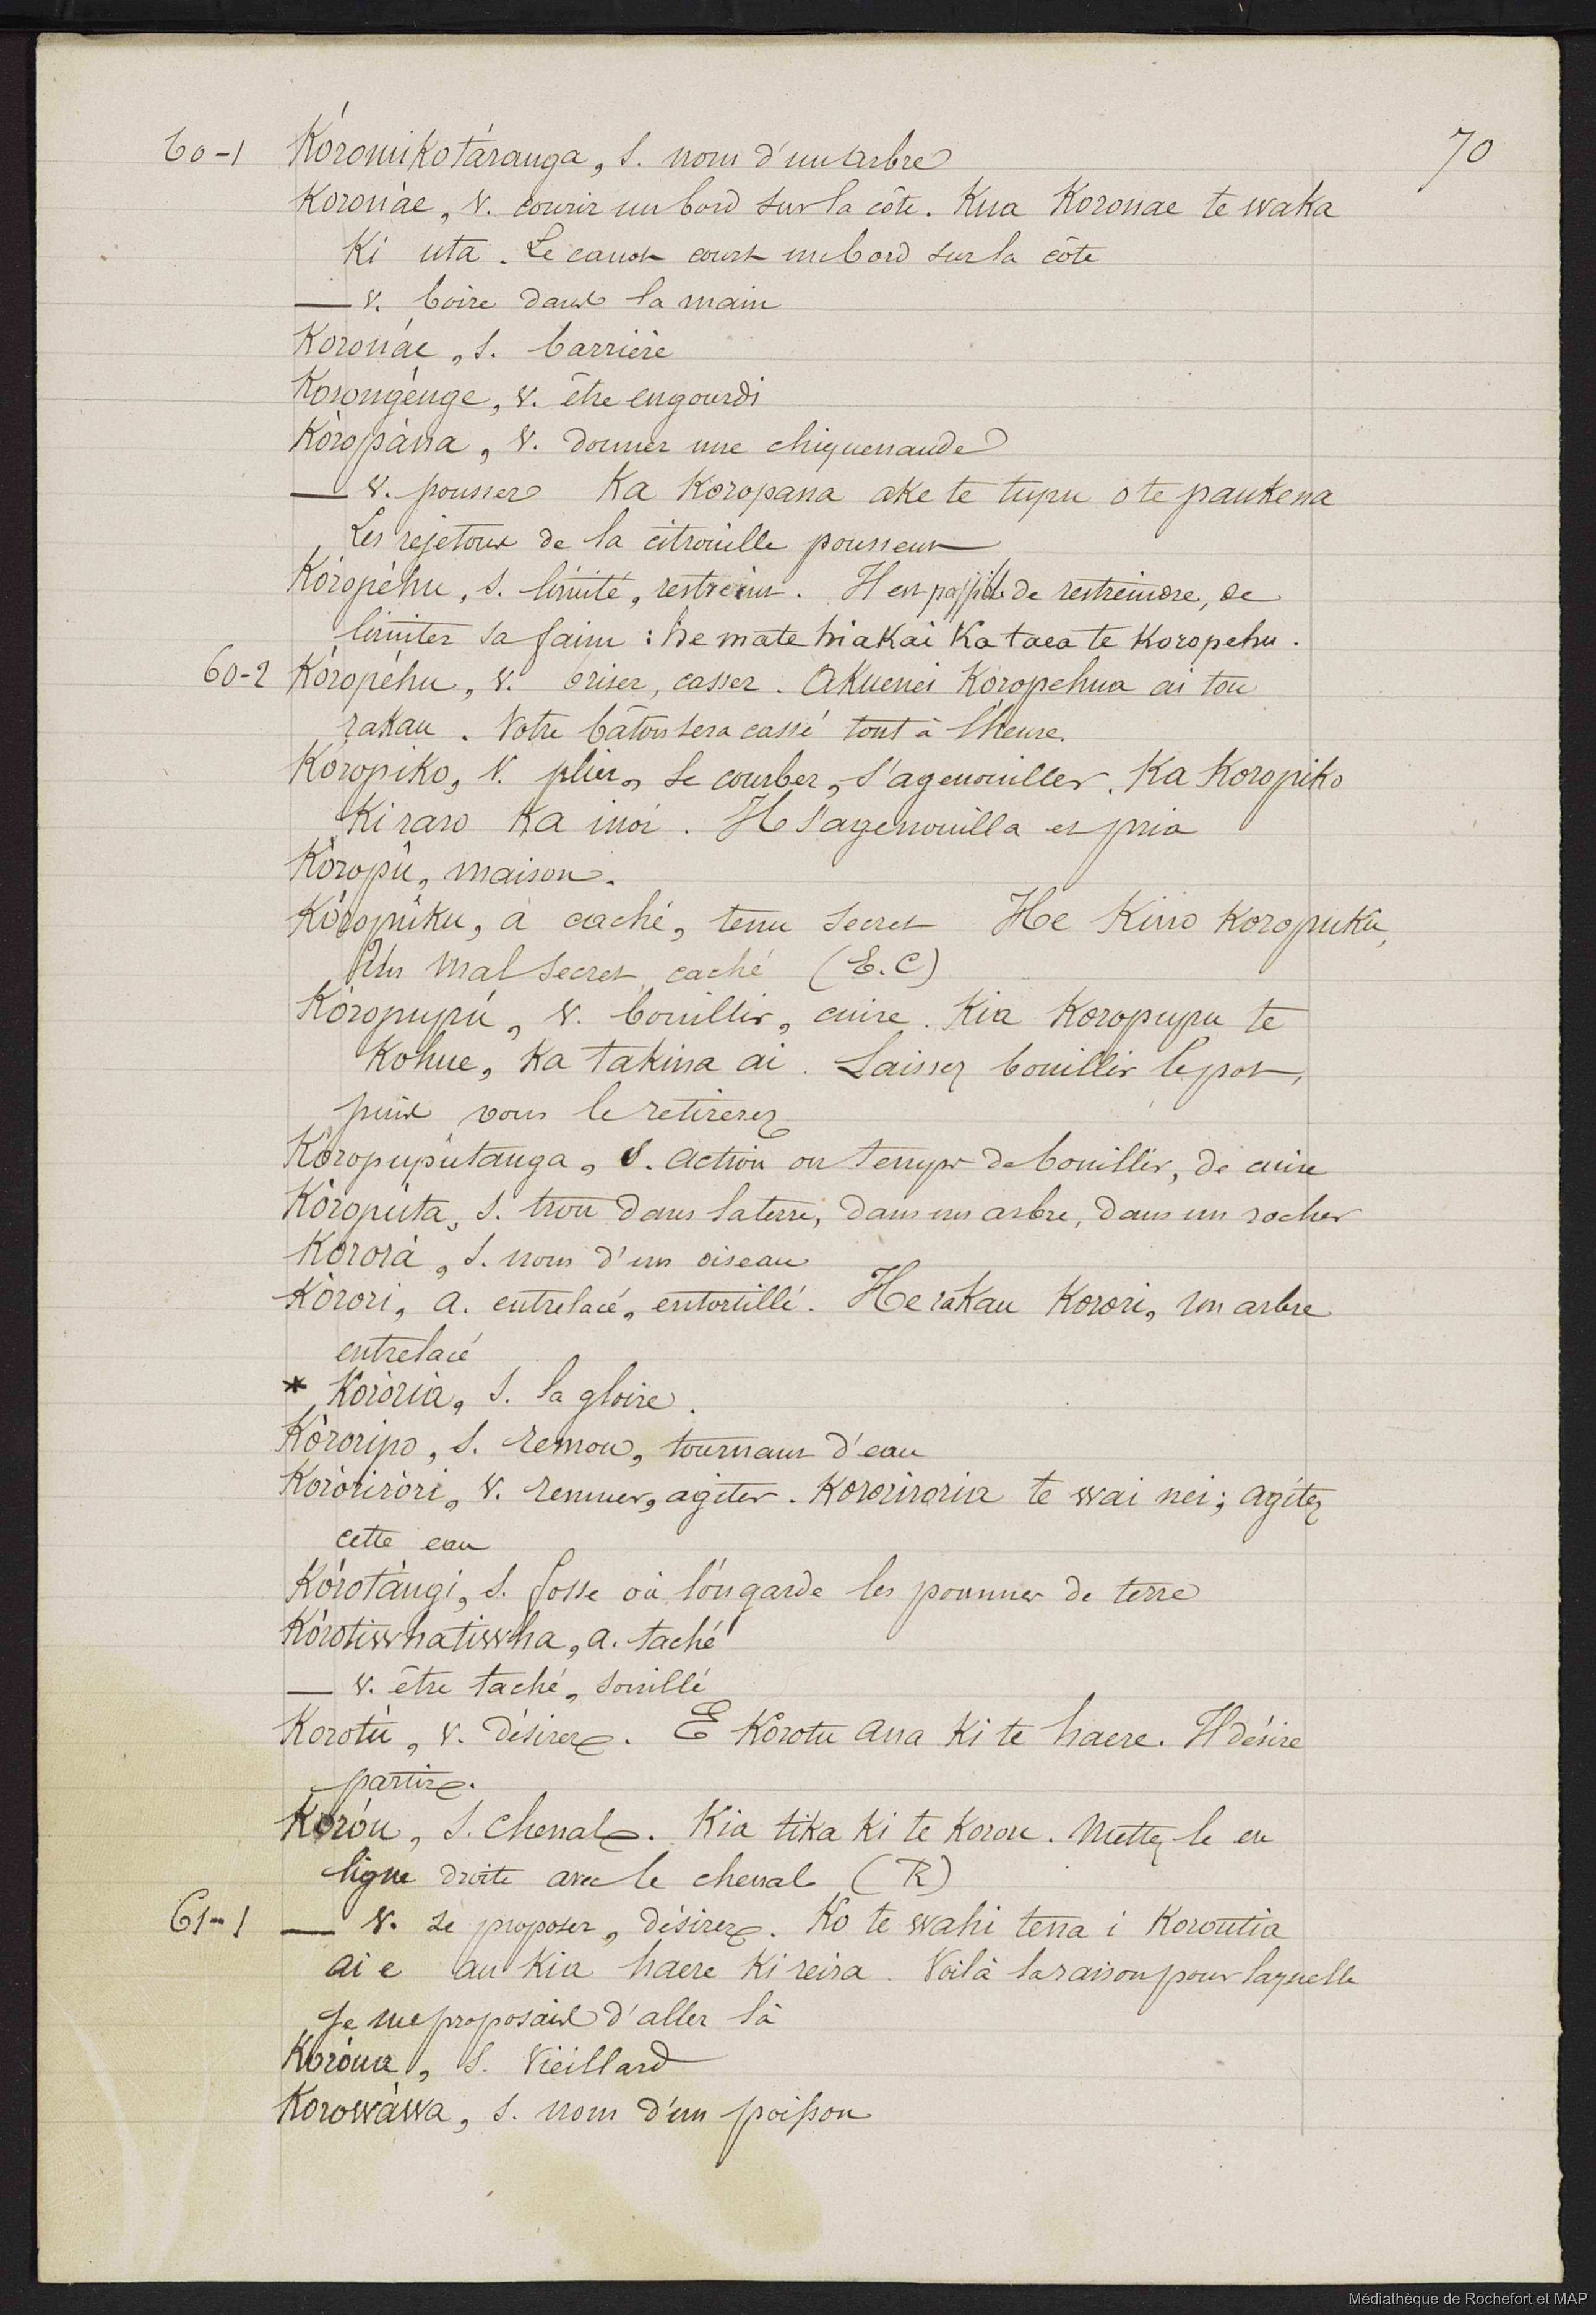 70
60-1 Kóromikotáranga, s. nom d'un arbre
Koronáe, v. courir un bord sur la côte. Kua Koronae te waka
Ki uta. Le canot court un bord sur la côte
— v. boire dans la main
Koronáe, s. barrière
Korongénge, v. être engourdi
Kòropàna, v. donner une chiquenaude
— v. pousser Ka Koropana ake te tupu o te paukena
Les rejetons de la citrouille poussent
Kóropéhu, s. limité, restreint. Il est possible de restreindre, de
limiter sa faim : he mate hiakai Ka taea te Koropehu.
60-2 Kóropéhu, v. briser, casser. Akuenei Koropehua ai tou
rakau. Votre bâton sera cassé tout à l'heure.
Kóropiko, v. plier, se courber, s'agenouiller. Ka Koropiko
Ki raro Ka inoi. Il s'agenouilla et pria
Kòropû, maison.
Kòropùku, a caché, tenu secret He Kino Koropuku,
Un mal secret, caché (E.C)
Kòropupú, v. bouillir, cuire. Kia Koropupu te
Kohue, Ka takina ai. Laissez bouillir le pot,
puis vous le retirerez
Kòropupùtanga, s. action ou temps de bouillir, de cuire
Kòropùta, s. trou dans la terre, dans un arbre, dans un rocher
Kororà, s. nom d'un oiseau
Kòrori, a. entrelacé, entortillé. He rakau Korori, un arbre
entrelacé
* Koròria, s. la gloire.
Kòroripo, s. remou, tournant d'eau
Koròriròri, v. remuer, agiter. Kororiroria te wai nei; agitez
cette eau
Kórotàngi, s. fosse où l'on garde les pommes de terre
Kòrotiwhatiwha, a. taché
— v. être taché, souillé
Korotù, v. désirer. E Korotu ana Ki te haere. Il désire
partir.
Koróu, s. chenal. Kia tika Ki te Korou. Mettez le en
ligne droite avec le chenal (R)
61-1 — v. se proposer, désirer. Ko te wahi tena i Koroutia
ai e au Kia haere Ki reira. Voilà la raison pour laquelle
Je me proposais d'aller là
Koróua, s. Vieillard
Korowàwa, s. nom d'un poisson
Médiathèque de Rochefort et MAP